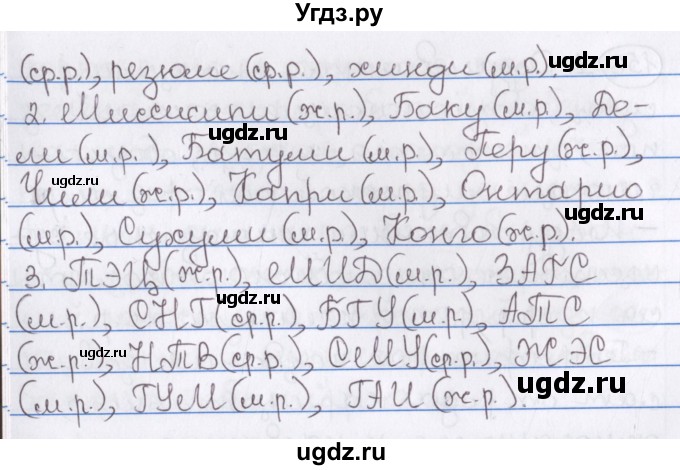 Угдз.ру
(ср.р.), резюме (ср.р.), хинди (м.р.).
2. Миссисипи (ж.р.), Баку (м.р.), Де-
ли (м.р.), Батуми (м.р.), Перу (ж.р.),
Чили (ж.р.), Капри (м.р.), Онтарио
(м.р.), Сухуми (м.р.), Конго (ж.р.).
3. ТЭЦ (ж.р.), МИД (м.р.), ЗАГС
(м.р.), СНГ (ср.р.), БГУ (м.р.), АТС
(ж.р.), НТВ (ср.р.), СМУ (ср.р.), ЖЭС
(м.р.), ГУМ (м.р.), ГАИ (ж.р.).
ugdz.ru
ugdz.ru
ugdz.ru
ugdz.ru
ugdz.ru
ugdz.ru
ugdz.ru
ugdz.ru
ugdz.ru